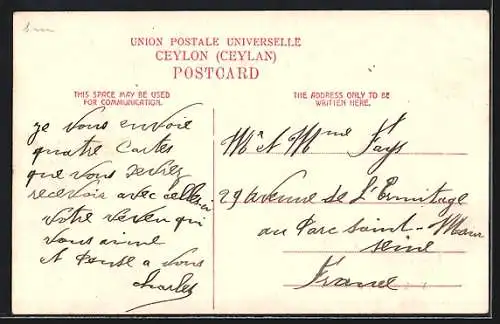 UNION POSTALE UNIVERSELLE
CEYLON (CEYLAN)
POSTCARD
THIS SPACE MAY BE USED
FOR COMMUNICATION.
THE ADDRESS ONLY TO BE
WRITTEN HERE.
Je vous envoie
quatre cartes
que vous devrez
recevoir avec celle ci
votre neveu qui
vous aime
et pense a vous
Charles
Mr et Mme Fays
29 avenue de L'Ermitage
au Parc Saint-Maur
Seine
France